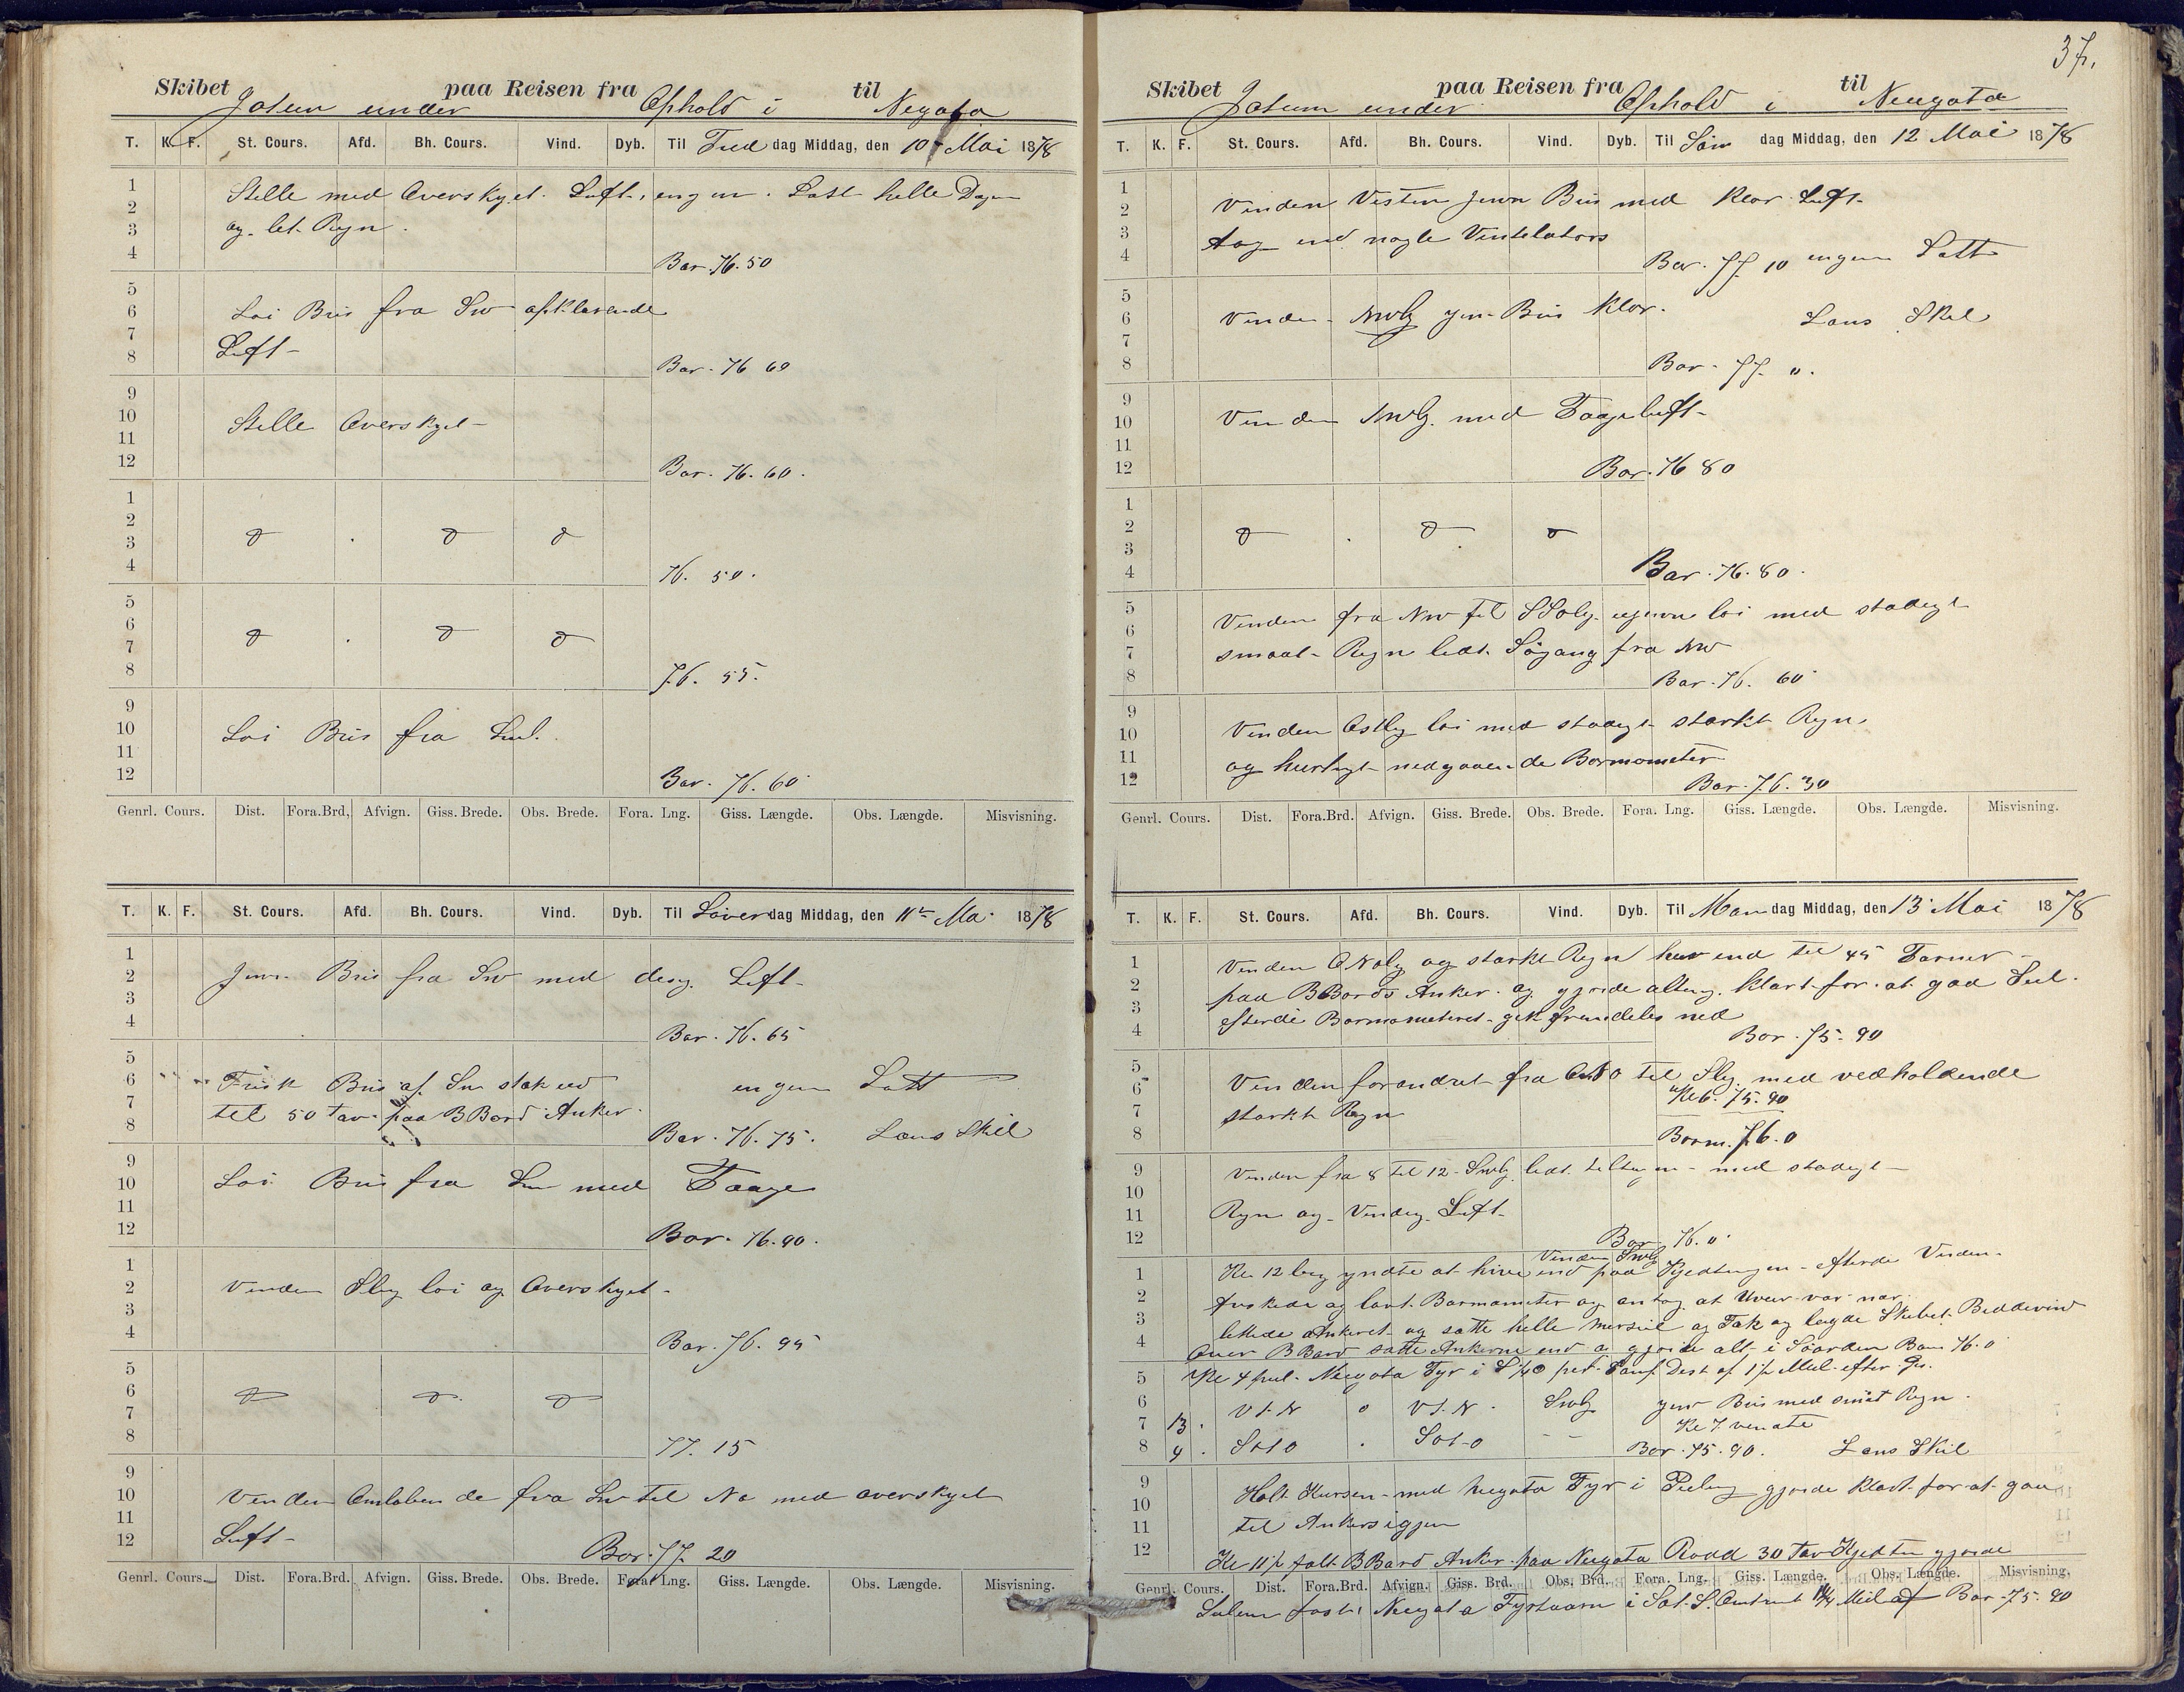 Skibet Jotun under paa Reisen fra Ophold i til Neegata
T. K. F. St. Cours. Afd. Bh. Cours. Vind. Dyb. Til Fredag Middag, den 10 Mai 1878
1
2
3
4
Stille med Overskyet Luft, engen Last helle Dagen
og let Regn.
Bar. 76.50
5
6
7
8
Loi Bris fra SW opklarende
Luft
Bar. 76 60
9
10
11
12
Stille Overskyet
Bar. 76.60.
1
2
3
4
76. 50.
5
6
7
8
76. 55.
9
10
11
12
Loi Bris fra
Bar. 76.60
Genrl. Cours. Dist. Fora.Brd. Afvign. Giss. Brede. Obs. Brede. Fora. Lng. Giss. Længde. Obs. Længde. Misvisning.
T. K. F. St. Cours. Afd. Bh. Cours. Vind. Dyb. Til Löverdag Middag, den 11te Mai 1878
1
2
3
4
Jevn Bris fra SW med disig Luft
Bar. 76.65
5
6
7
8
Frisk Bris af SW stak ud engen Last
til 50 Fav. paa BBord Anker
Bar. 76.75. Lens Skib
9
10
11
12
Loi Bris fra SW med Taage
Bar. 76.90.
1
2
3
4
Vinden Slig loi og Overskyet
Bar. 76. 95
5
6
7
8
77. 15
9
10
11
12
Vinden Omlöbende fra SW til NO med overskyet
Luft
Bar. 77. 20
Genrl. Cours. Dist. Fora.Brd. Afvign. Giss. Brede. Obs. Brede. Fora. Lng. Giss. Længde. Obs. Længde. Misvisning.
37.
Skibet Jotun under paa Reisen fra Ophold i til Neegata
T. K. F. St. Cours. Afd. Bh. Cours. Vind. Dyb. Til Söndag Middag, den 12 Mai 1878
1
2
3
4
Vinden Vesten jevn Bris med Klar Luft
tog ind nogle Ventelators
Bar. 77 10 engen Last
5
6
7
8
Vinden NWlig jevn Bris Klar. Lens Skib
Bar. 77. 0.
9
10
11
12
Vinden NWlig med Taageluft
Bar. 76 80
1
2
3
4
Bar. 76.80.
5
6
7
8
Vinden fra NW til SSolig ujevn loi med stadigt
smaat Regn lidt Sögang fra NW
Bar. 76. 60
9
10
11
12
Vinden Ostlig loi med stadigt stærkt Regn
og hurtigt nedgaaende Barmometer
Bar. 76.30
Genrl. Cours. Dist. Fora.Brd. Afvign. Giss. Brede. Obs. Brede. Fora. Lng. Giss. Længde. Obs. Længde. Misvisning.
T. K. F. St. Cours. Afd. Bh. Cours. Vind. Dyb. Til Mandag Middag, den 13 Mai 1878
1
2
3
4
Vinden ONolig og stærkt Regn hev ind til 45 Favner
paa BBords Anker og gjorde alting klart for at gaa Seil
efterdi Barmometeret gik fremdeles ned
Bar. 75. 90
5
6
7
8
Vinden forandret fra ONO til Slig med vedholdende
Kl 6. 75.90
stærkt Regn
Barm. 76.0
9
10
11
12
Vinden fra 8 til 12 SWlig lidt med stadigt
Regn og Vindig Luft
Bar 76.0
Vinden SWlig
1
2
3
4
Kl 12 begyndte at hive ind paa Kjedtingen efterdi Vinden
friskede og lavt Barmometer og antog at Uveir var nær
lettede Ankeret og satte helle Mersseil og Fok og lagde Skibet Beddevind
over BBord satte Ankerne ind og gjorde alt i Söorden Bar 76.0
5
6
7
8
Kl 4 peil. Neegata Fyr i Dist af 1½ Mil efter
VtN 0 VtN SWlig jevn Bris med smaat Regn
13 . Kl 7 vendte
4 . SOtO . SOtO Bar. 75.90. Lens Skib
9
10
11
12
Holt Kursen med Neegata Fyr i Peiling gjorde klart for at gaa
til Ankers igjen
Kl 11½ falt BBord Anker paa Neegata Road 30 Fav Kjedting gjorde
Genrl. Cours. Dist. Fora.Brd. Afvign. Giss. Brd. Obs. Brd. Fora. Lng. Giss. Længde. Obs. Længde. Misvisning.
Seilene fast, Neegata Fyrtaarn i Mil af Bar. 75. 90